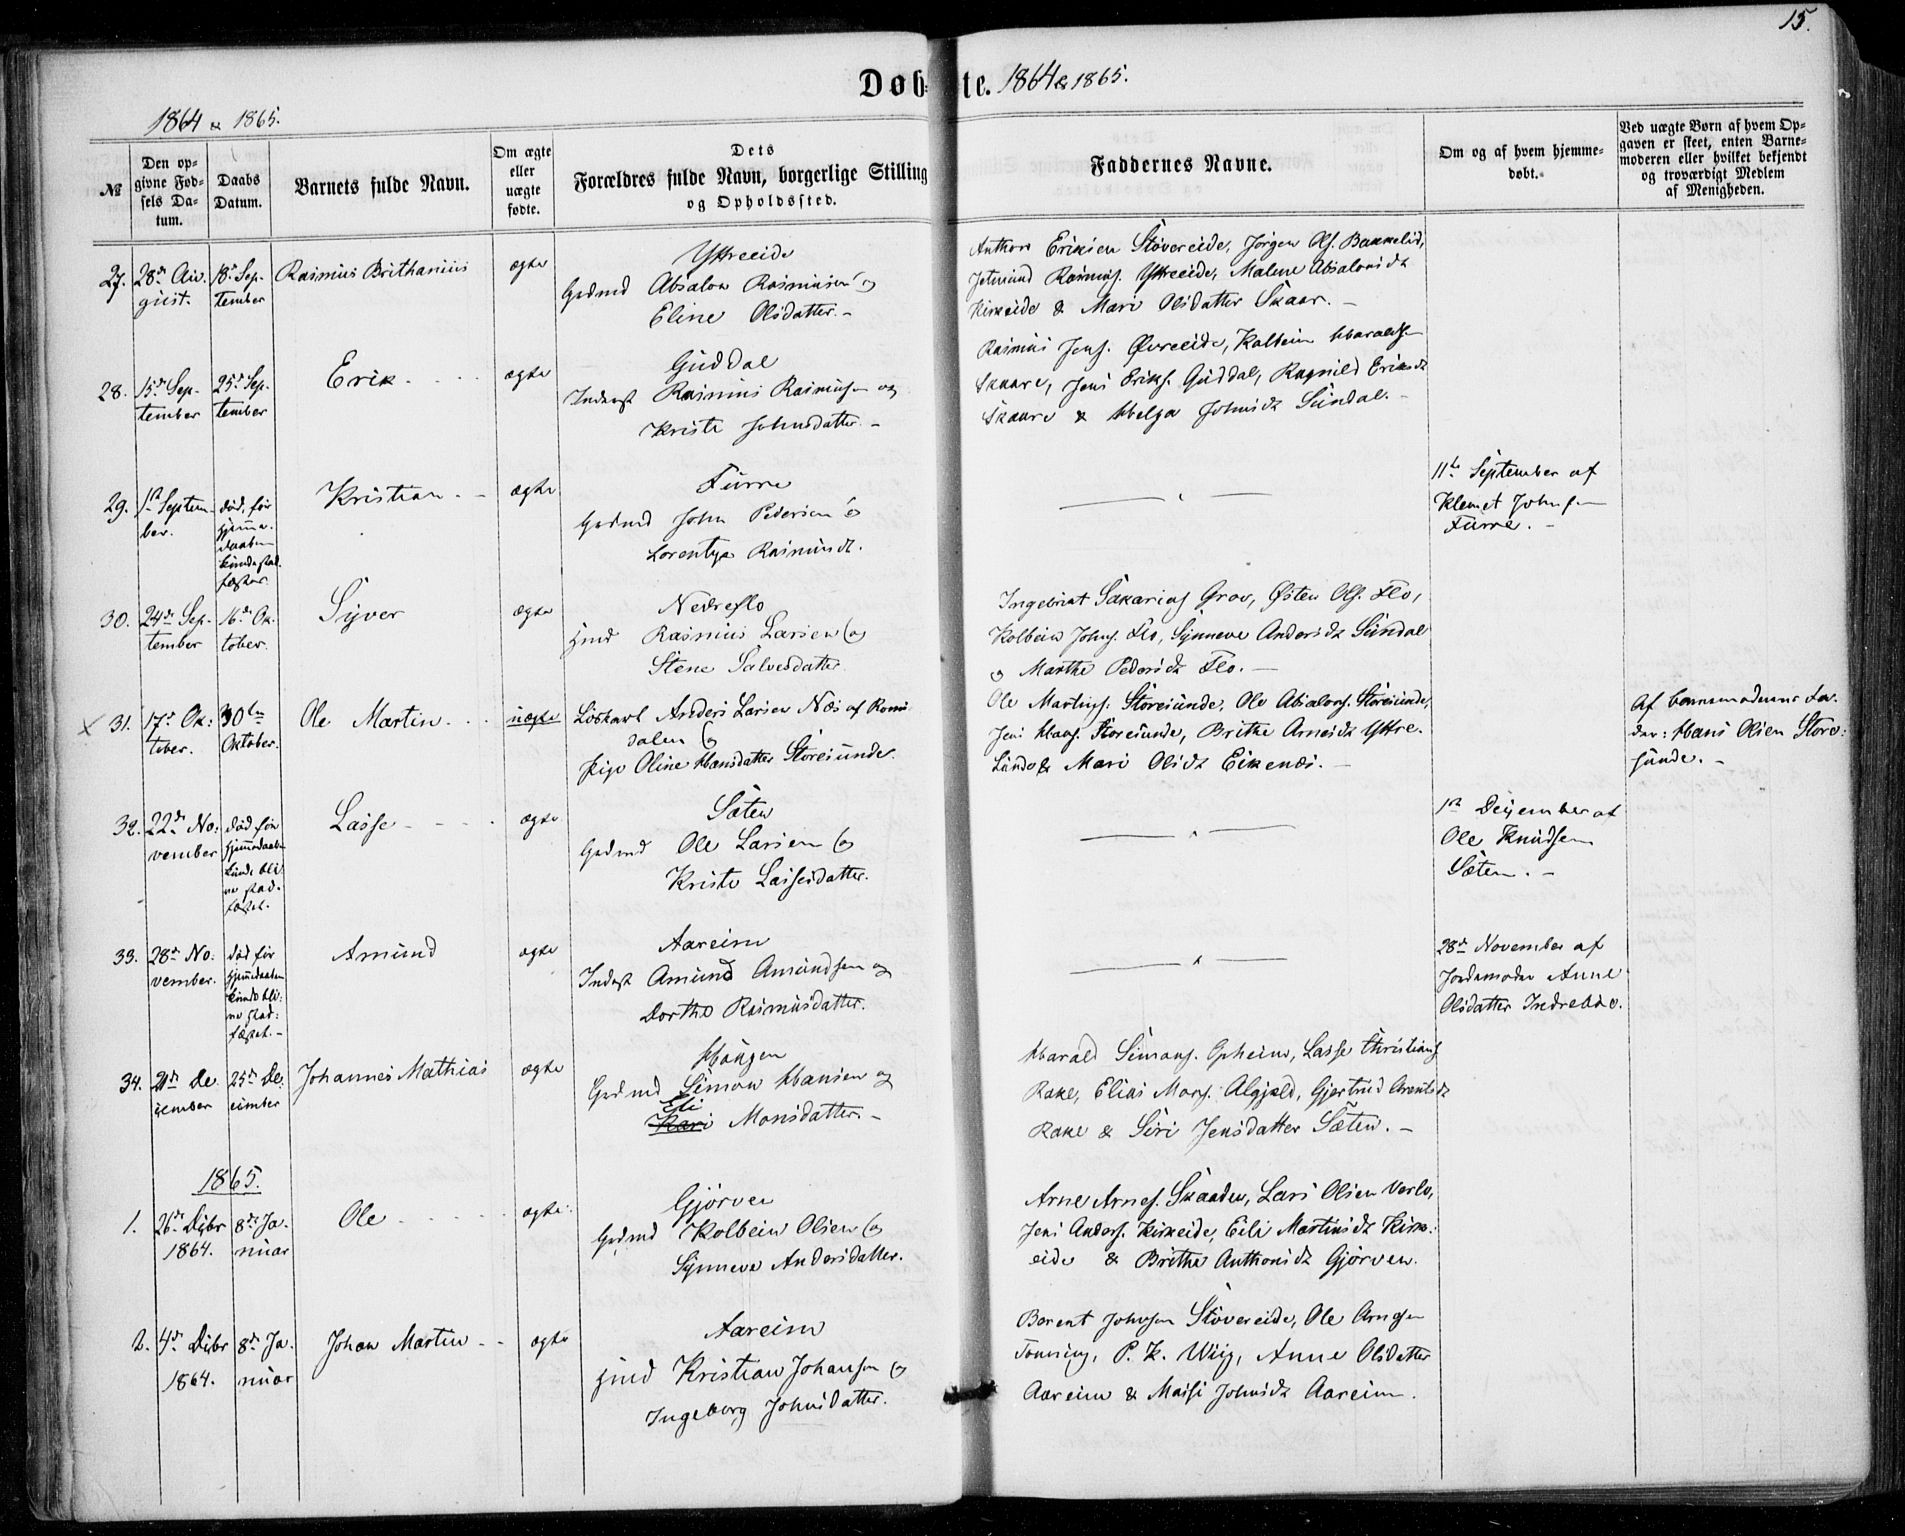 15.
Døbte. 1864 & 1865.
1864 & 1865.
№
Den op-
givne Fød-
sels Da-
tum.
Daabs
Datum.
Barnets fulde Navn.
Om ægte
eller
uægte
fødte.
Dets
Forældres fulde Navn, borgerlige Stilling
og Opholdssted.
Faddernes Navne.
Om og af hvem hjemme-
døbt.
Ved uægte Børn af hvem Op-
gaven er skeet, enten Barne-
moderen eller hvilket bekjendt
og troværdigt Medlem
af Menigheden.
27.
28de Au-
gust.
18de Sep-
tember
Rasmus Brithanius
ægte
Ytreeide
Gdmd Absalon Rasmusen og
Eline Olsdatter. -
Anthon Eriksen Støvereide, Jørgen Ols. Bakkelid,
Jetmund Rasmus. Ytreeide, Malene Absalonsdt
Kirkeide & Mari Olsdatter Skaar. -
28.
15de Sep-
tember
25de Sep-
tember
Erik
ægte
Guddal
Inderst Rasmus Rasmusen og
Kristi Johnsdatter. -
Rasmus Jens. Øvreeide, Kolbein Haralds.
Skaare, Jens Eriks. Guddal, Ragnild Eriksdt
Skaare & Helga Johnsdt Sundal. -
29.
1ste Septem-
ber.
død, før
hjemme-
daaben
kunde stad-
fæstes.
Kristian
ægte
Furre
Gadmd John Pedersen &
Lorentza Rasmusdt.
11te September af
Klemet Johnsen
Furre. -
30.
24de Sep-
tember
16de Ok-
tober.
Syver
ægte
Nedreflo
Hmd Rasmus Larsen og
Stene Salvesdatter
Ingebrigt Sakarias. Grov, Østen Ols. Flo,
Kolbein Johns. Flo, Synneve Andersdt Sundal
og Marthe Pedersdt Flo. -
31.
17de Ok:
tober.
30te
Oktober.
Ole Martin
uægte
Løskarl Anders Larsen Næs af Roms-
dalen og
Pige Oline Hansdatter Storesunde.
Ole Martins. Storesunde, Ole Absalons. Storesunde,
Jens Hans. Storesunde, Brithe Arnesdt Ytre-
Lunde & Mari Olsdt Eikenæs. -
Af barnemoderens Fa-
der: Hans Olsen Store-
sunde. -
32.
22de No:
vember
død før
hjemmedaaben
kunde bli-
ve stad-
fæstet.
Lasse
ægte
Sæten
Gadmd Ole Larsen og
Kristi Lassesdatter.
1ste Dezember af
Ole Knudsen
Sæten. -
33.
28de No:
vember.
død før
hjemmedaaben
kunde bli:
ve stad:
fæstet. -
Amund
ægte
Aareim
Inderst Amund Amundsen og
Dorthe Rasmusdatter.
28de November af
Jordemoder Anne
Olsdatter Indrebøe.
34.
21de De-
cember
25de De-
cember
Johannes Mathias
ægte
Haugen
Gadmd Simon Hansen og
Eli
Kari Monsdatter. -
Harald Simons. Opheim, Lasse Christians.
Rake, Elias Mons. Algjeld, Gjertrud Arentsdt
Rake & Siri Jensdatter Sæten. -
1865.
1.
26de Dcbr
1864.
8de Ja-
nuar
Ole
ægte
Gjørven
Gadmd Kolbein Olsen og
Synneve Andersdatter.
Arne Arnes. Skaaden, Lars Olsen Verlo,
Jens Anders. Kirkeide, Eili Martinsdt Kirk-
eide & Brithe Anthonsdt Gjørven.
2.
4de Dcbr
1864.
8de Ja-
nuar
Johan Martin
ægte
Aareim
Hmd Kristian Johansen og
Ingeborg Johnsdatter.
Berent Johnsen Støvereide, Ole Arnesen
Tonning, P. K. Wiig, Anne Olsdatter
Aareim & Maisi Johnsdt Aareim.